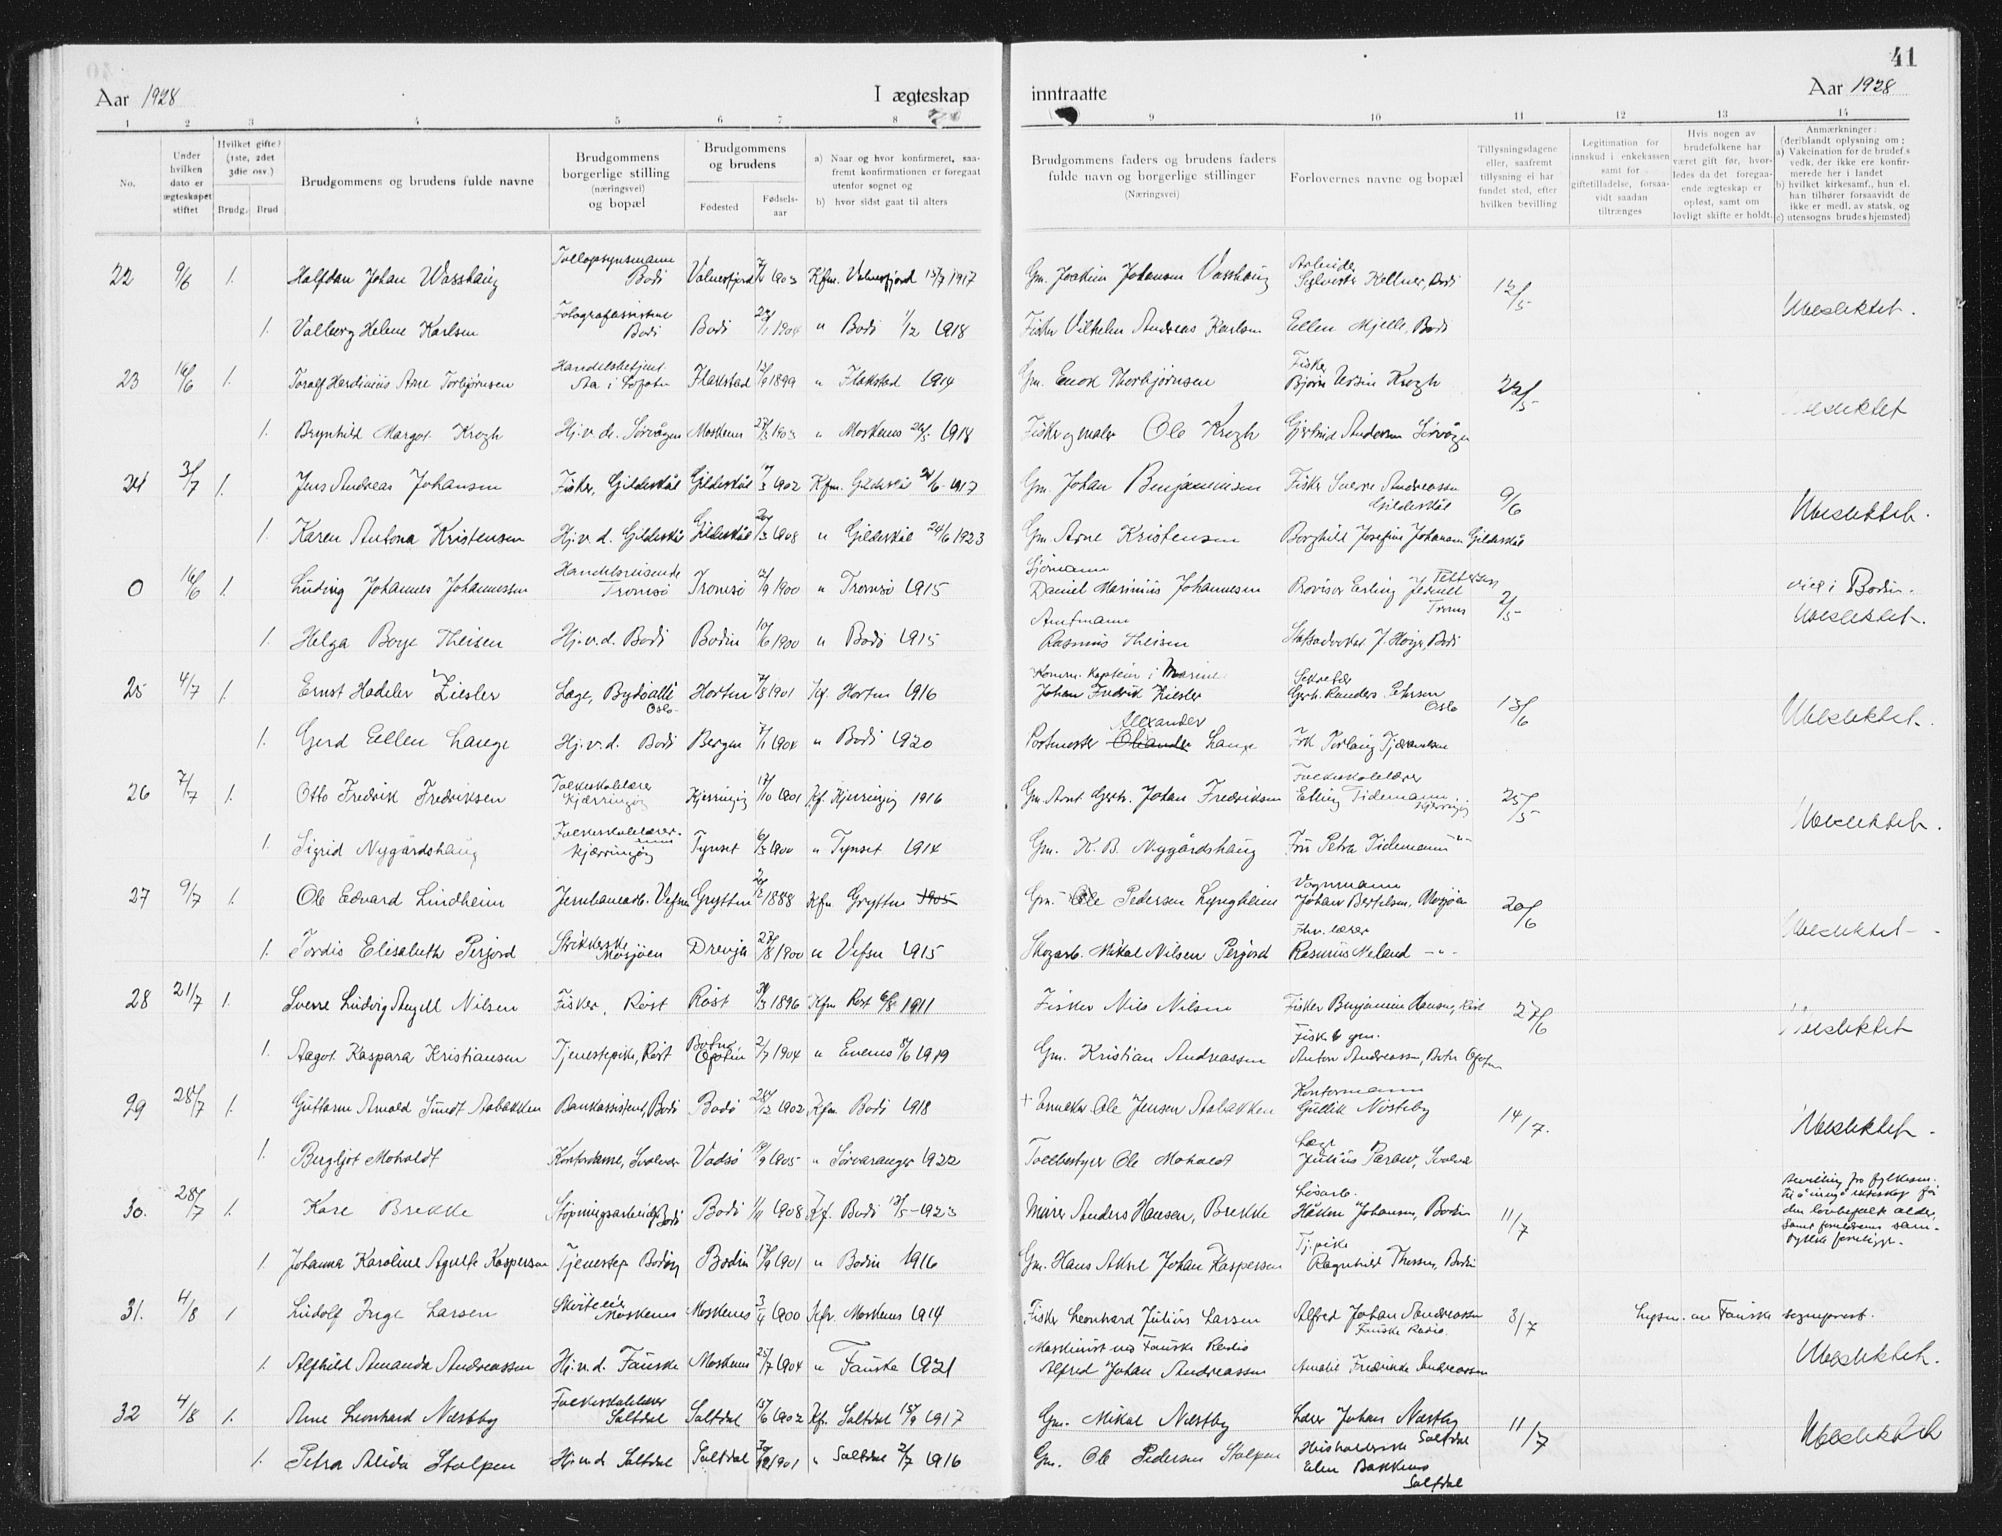 41
Aar 1928 I ægteskap inntraatte Aar 1928
1 2 3 4 5 6 7 8 9 10 11 12 13 14
No.
Under hvilken dato er ægteskapet stiftet
Hvilket gifte? (1ste, 2det 3die osv.)
Brudg. Brud
Brudgommens og brudens fulde navne
Brudgommens borgerlige stilling (næringsvei) og bopæl
Brudgommens og brudens
Fødested Fødsels-aar
a) Naar og hvor konfirmeret, saafremt konfirmationen er foregaat utenfor sognet og
b) hvor sidst gaat til alters
Brudgommens faders og brudens faders fulde navn og borgerlige stillinger (Næringsvei)
Forlovernes navne og bopæl
Tillysningsdagene eller, saafremt tillysning ei har fundet sted, efter hvilken bevilling
Legitimation for innskud i enkekassen samt for giftetilladelse, forsaavidt saadan tiltrænges
Hvis nogen av brudefolkene har været gift før, hvorledes da det foregaaende ægteskap er opløst, samt om lovligt skifte er holdt.
Anmærkninger: (deriblandt oplysning om:
a) Vakcination for de brudef.s vedk. der ikke ere konfirmerede her i landet
b) hvilket kirkesamf., hun el. han tilhører forsaavidt de ikke er medl. av statsk. og
c) utensogns brudes hjemsted)
22 9/6 1. Halfdan Johan Wasshaug Tollopsynsmann Bodø Valnesfjord 1903 Kfm. Valnesfjord 15/7 1917 Gm. Joakim Johansen Vasshaug Arbeider Sylvester Kellner, Bodø 12/5
1. Valborg Helene Karlsen Fotografassistent Bodø Bodø 1904 " Bodø 1/2 1918 Fisker Vilhelm Andreas Karlsen Ellen Mjelle, Bodø Ubeslektet.
23 16/6 1. Toralf Hardinius Arne Torbjørnsen Handelsbetjent Aa i Lofoten Flakstad 1899 " Flakstad 1914 Gm. Enok Thorbjørnsen Fisker Bjørn Ursin Krogh 22/5
1. Brynhild Margot Krogh Hj.v.d. Sørvågen Moskenes 1903 " Moskenes 1918 Fisker og maler Ole Krogh Gjertrud Andersen Sørvågen Ubeslektet
24 3/7 1. Jens Andreas Johansen Fisker, Gildeskål Gildeskål 1902 Kfm. Gildeskål 1917 Gm. Johan Benjaminsen Fisker Sverre Andreassen Gildeskål 9/6
1. Karen Antona Kristensen Hj.v.d. Gildeskål Gildeskål 1908 " Gildeskål 24/6 1923 Gm. Arne Kristensen Borghild Josefine Johansen Gildeskål Ubeslektet.
0 16/6 1. Ludvig Johannes Johannessen Handelsreisende Tromsø Tromsø 12/9 1900 " Tromsø 1915 Sjømann Daniel Marinius Johannesen Provisor Erling Pettersen Troms 2/5 viet i Bodin.
1. Helga Borge Theisen Hj.v.d. Bodø Bodin 10/6 1900 " Bodø 1915 Amtmann Rasmus Theisen Statsadvokat J. Høyer, Bodø Ubeslektet.
25 4/7 1. Ernst Hadeler Ziesler Læge, Bygdø allé Oslo Horten 1901 Kf. Horten 1916 Komm. kaptein i Marinen Johan Fredrik Ziesler Sekretær Gerh. Randers Pehrson Oslo 13/6
1. Gerd Ellen Lange Hj.v.d. Bodø Bergen 1904 " Bodø 1920 Postmester Alexander Lange Frk Ubeslektet.
26 7/7 1. Otto Fredrik Fredriksen Folkeskolelærer Kjærringøy Kjerringøy 17/10 1901 Kf. Kjerringøy 1916 Gm. Arnt Gerh. Johan Fredriksen Folkeskolelærer Elling Tidemann Kjerringøy 25/5
1. Sigrid Nygårdshaug Folkeskolelærerinne Kjærringøy Tynset 6/3 1900 " Tynset 1914 Gm. K. B. Nygårdshaug Fru Petra Tidemann " Ubeslektet.
27 9/7 1. Ole Edvard Lindheim Jernbanearb. Vefsn Grytten 1888 Kfm Grytten 1905 Gm. Ole Pedersen Lyngheim Vognmann Johan Bertelsen, Mosjøen 20/6
1. Tordis Elisabeth Perjord Strikkerske Mosjøen Drevja 27/8 1900 " Vefsn 1915 Skogarb. Mikal Nilsen Perjord Fhv. lærer Rasmus Meland -"- Ubeslektet
28 21/7 1. Sverre Ludvig Angell Nilsen Fisker, Røst Røst 1896 Kfm Røst 6/8 1911 Fisker Nils Nilsen Fisker Benjamin Hansen, Røst 27/6
1. Aagot Kaspara Kristiansen Tjenestepike, Røst Botn Ofoten 2/7 1904 " Evenes 1919 Gm. Kristian Andreassen Fisker & gm. Anton Andreassen, Botn Ofoten Ubeslektet
29 28/7 1. Guttorm Arnold Sundt Aabakken Bankassistent, Bodø Bodø 1902 Kfm Bodø 1918 + Snekker Ole Jensen Aabakken Kontormann Gullik Nøsteby 14/7.
1. Bergljot Moholdt Kontordame, Svolvær Vadsø 1905 " Sørvaranger 1922 Tollbestyrer Ole Moholdt Læge Julius Parow, Svolvær Ubeslektet.
30. 28/7 1. Kåre Brekke Støpningsarbeider Bodø Bodø 1908 Kf. Bodø 1923 Murer Anders Hansen, Brekke Løsarb. Håkon Johansen, Bodin 11/7 bevilling fra fylkesm. til å inngå ekteskap før den lovbefalte alder, samt foreldrenes samtykke foreligger.
1. Johanna Karoline Agnete Kaspersen Tjenestep Bodøy Bodin 1901 " Bodin 1916 Gm. Hans Aksel Johan Kaspersen Tj.pike Ragnhild Thorsen, Bodin
31. 4/8 1 Ludolf Inge Larsen Moskenes Moskenes 3/4 1900 Kfr. Moskenes 1914 Fisker Leonhard Julius Larsen Alfred Johan Andreassen Fauske Radio 8/7 Lysn. av Fauske sogneprest.
1. Alfhild Amanda Andreassen Hj.v.d. Fauske Moskenes 25/7 1904 " Fauske 1921 Maskinist ved Fauske Radio Alfred Johan Andreassen Amalie Fredrikke Andreassen Ubeslektet.
32 4/8 1. Arne Leonhard Næstby Folkeskolelærer Saltdal Saltdal 1902 Kf. Saltdal 1917 Gm. Mikal Næstby Lærer Johan Næstby Saltdal 11/7
1. Petra Alida Stolpen Hj.v.d Saltdal Saltdal 1901 " Saltdal 2/7 1916 Gm. Ole Pedersen Stolpen Husholderske Elen Bakkens Saltdal Ubeslektet